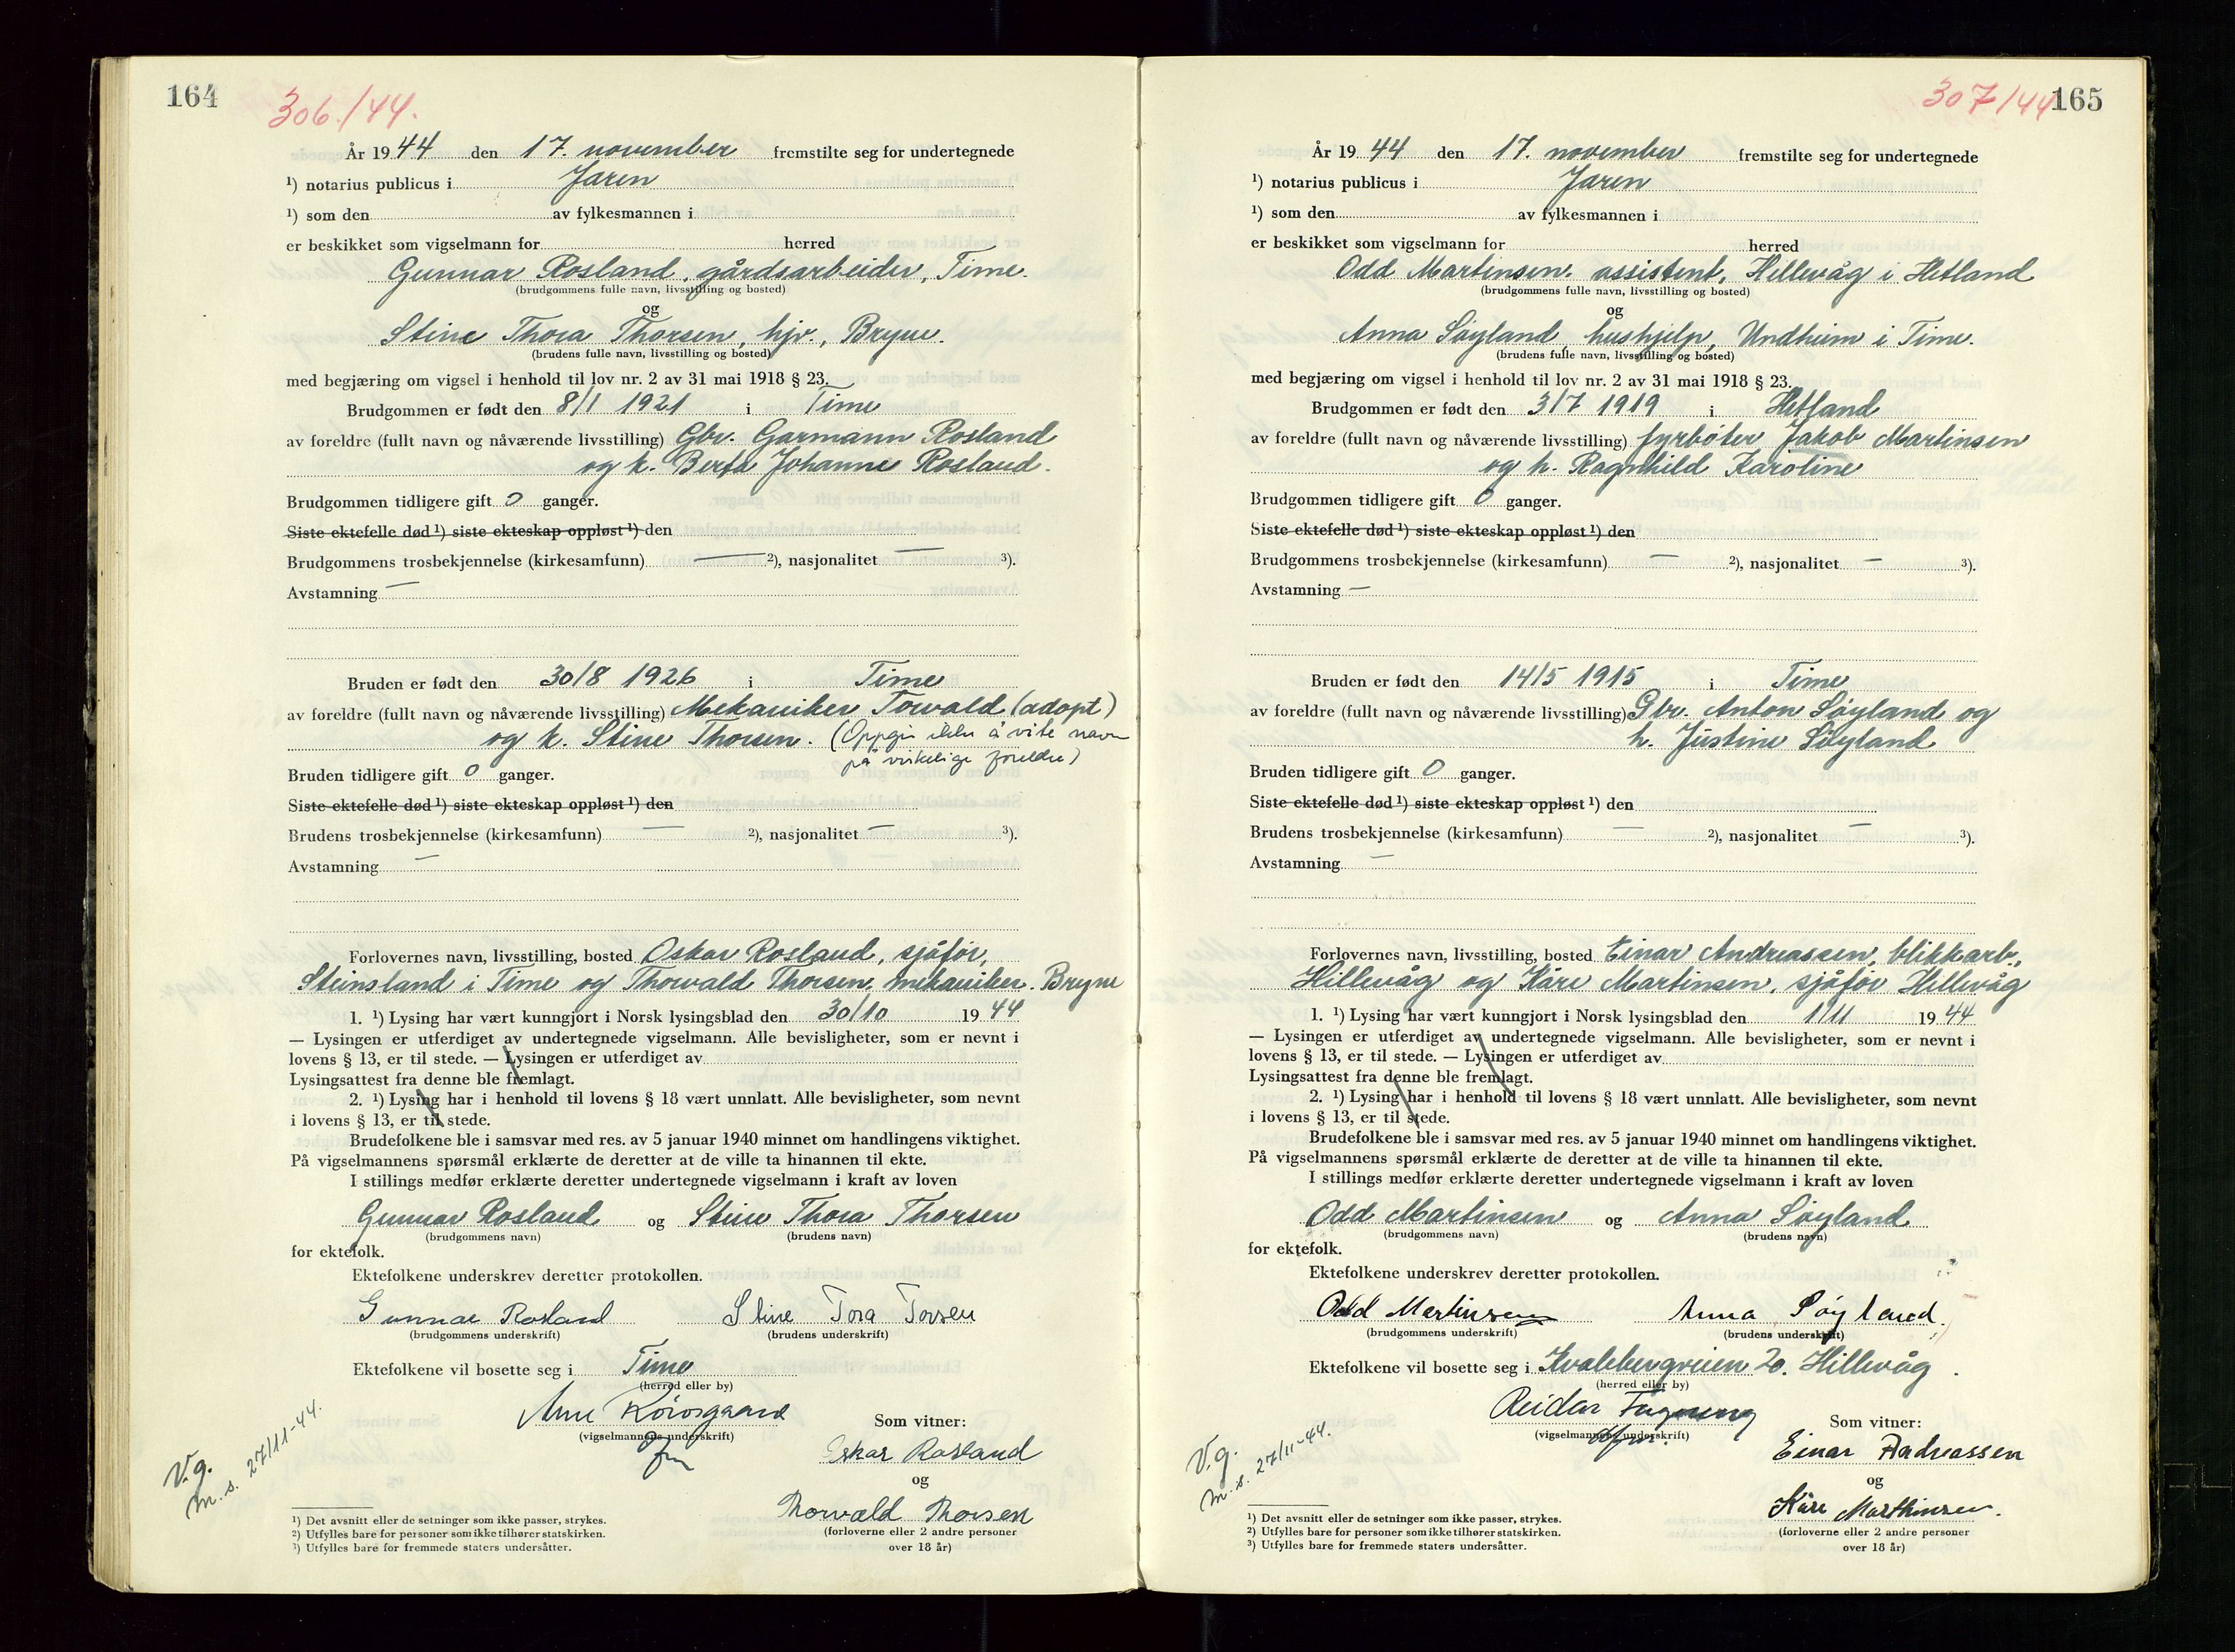 164
306./44.
År 1944 den 17. november fremstilte seg for undertegnede
¹) notarius publicus i Jæren
¹) som den av fylkesmannen i
er beskikket som vigselmann for herred
Gunnar Rosland, gårdsarbeider, Time.
(brudgommens fulle navn, livsstilling og bosted)
og
Stine Thora Thorsen, hjv., Bryne.
(brudens fulle navn, livsstilling og bosted)
med begjæring om vigsel i henhold til lov nr. 2 av 31 mai 1918 § 23.
Brudgommen er født den 8/1 1921 i Time
av foreldre (fullt navn og nåværende livsstilling) Gbr. Garmann Rosland
og h. Berta Johanne Rosland.
Brudgommen tidligere gift 0 ganger.
Siste ektefelle død ¹) siste ekteskap oppløst ¹) den
Brudgommens trosbekjennelse (kirkesamfunn) — ²), nasjonalitet — ³).
Avstamning —
Bruden er født den 30/8 1926 i Time
av foreldre (fullt navn og nåværende livsstilling) Mekaniker Towald (adopt)
og h. Stine Thorsen. (Oppgir ikke å vite navn
på virkelige foreldre)
Bruden tidligere gift 0 ganger.
Siste ektefelle død ¹) siste ekteskap oppløst ¹) den
Brudens trosbekjennelse (kirkesamfunn) — ²), nasjonalitet — ³).
Avstamning —
Forlovernes navn, livsstilling, bosted Oskar Rosland, sjåfør,
Steinsland i Time og Thorvald Thorsen, mekaniker. Bryne
1. ¹) Lysing har vært kunngjort i Norsk lysingsblad den 30/10 1944
— Lysingen er utferdiget av undertegnede vigselmann. Alle bevisligheter, som er nevnt i
lovens § 13, er til stede. — Lysingen er utferdiget av
Lysingsattest fra denne ble fremlagt.
2. ¹) Lysing har i henhold til lovens § 18 vært unnlatt. Alle bevisligheter, som nevnt
i lovens § 13, er til stede.
Brudefolkene ble i samsvar med res. av 5 januar 1940 minnet om handlingens viktighet.
På vigselmannens spørsmål erklærte de deretter at de ville ta hinannen til ekte.
I stillings medfør erklærte deretter undertegnede vigselmann i kraft av loven
Gunnar Rosland og Stine Thora Thorsen
(brudgommens navn) (brudens navn)
for ektefolk.
Ektefolkene underskrev deretter protokollen.
Gunnar Rosland Stine Tora Torsen
(brudgommens underskrift) (brudens underskrift)
Ektefolkene vil bosette seg i Time
(herred eller by)
Arne Korsgaard
(vigselmannens underskrift)
Som vitner:
Oskar Rosland
og
Thorvald Thorsen
(forloverne eller 2 andre personer
over 18 år)
V.g.
m.s. 27/11-44.
¹) Det avsnitt eller de setninger som ikke passer, strykes.
²) Utfylles bare for personer som ikke tilhører statskirken.
³) Utfylles bare for fremmede staters undersåtter.
307/44
165
År 1944 den 17. november fremstilte seg for undertegnede
¹) notarius publicus i Jæren
¹) som den av fylkesmannen i
er beskikket som vigselmann for herred
Odd Martinsen, assistent, Hillevåg i Hetland
(brudgommens fulle navn, livsstilling og bosted)
og
Anna Søyland, hushjelp, Undheim i Time.
(brudens fulle navn, livsstilling og bosted)
med begjæring om vigsel i henhold til lov nr. 2 av 31 mai 1918 § 23.
Brudgommen er født den 3/7 1919 i Hetland
av foreldre (fullt navn og nåværende livsstilling) fyrbøter Jakob Martinsen
og h. Ragnhild Karoline
Brudgommen tidligere gift 0 ganger.
Siste ektefelle død ¹) siste ekteskap oppløst ¹) den
Brudgommens trosbekjennelse (kirkesamfunn) — ²), nasjonalitet — ³).
Avstamning —
Bruden er født den 14/5 1915 i Time
av foreldre (fullt navn og nåværende livsstilling) Gbr. Anton Søyland og
h. Justine Søyland
Bruden tidligere gift 0 ganger.
Siste ektefelle død ¹) siste ekteskap oppløst ¹) den
Brudens trosbekjennelse (kirkesamfunn) — ²), nasjonalitet — ³).
Avstamning —
Forlovernes navn, livsstilling, bosted Einar Andreassen, blikkarb.,
Hillevåg og Kåre Martinsen, sjåfør Hillevåg
1. ¹) Lysing har vært kunngjort i Norsk lysingsblad den 1/11 1944
— Lysingen er utferdiget av undertegnede vigselmann. Alle bevisligheter, som er nevnt i
lovens § 13, er til stede. — Lysingen er utferdiget av
Lysingsattest fra denne ble fremlagt.
2. ¹) Lysing har i henhold til lovens § 18 vært unnlatt. Alle bevisligheter, som nevnt
i lovens § 13, er til stede.
Brudefolkene ble i samsvar med res. av 5 januar 1940 minnet om handlingens viktighet.
På vigselmannens spørsmål erklærte de deretter at de ville ta hinannen til ekte.
I stillings medfør erklærte deretter undertegnede vigselmann i kraft av loven
Odd Martinsen og Anna Søyland
(brudgommens navn) (brudens navn)
for ektefolk.
Ektefolkene underskrev deretter protokollen.
Odd Martinsen Anna Søyland.
(brudgommens underskrift) (brudens underskrift)
Ektefolkene vil bosette seg i Kvalebergveien 20. Hillevåg
(herred eller by)
Reidar
(vigselmannens underskrift)
Som vitner:
Einar Andreassen
og
Kåre Marthinsen.
(forloverne eller 2 andre personer
over 18 år)
V.g.
m.s. 27/11-44.
¹) Det avsnitt eller de setninger som ikke passer, strykes.
²) Utfylles bare for personer som ikke tilhører statskirken.
³) Utfylles bare for fremmede staters undersåtter.